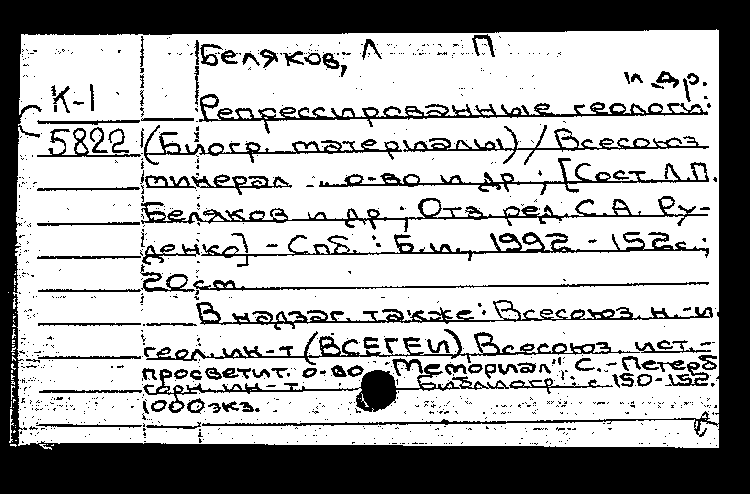 Беляков, Л П
и др.
К-1
Репрессированные геологи:
5822 (Биогр. материалы) / Всесоюз.
минерал. о-во и др.; [Сост. Л.П.
Беляков и др.; Отв. ред. С.А. Ру-
денко] - Спб.: Б.и., 1992 - 152с.;
20см.
В надзаг. также: Всесоюз. н.-и.
геол. ин-т (ВСЕГЕИ), Всесоюз. ист.-
просветит. о-во "Мемориал", С.-Петерб.
горн. ин-т. Библиогр.: с 150-152.
1000экз.